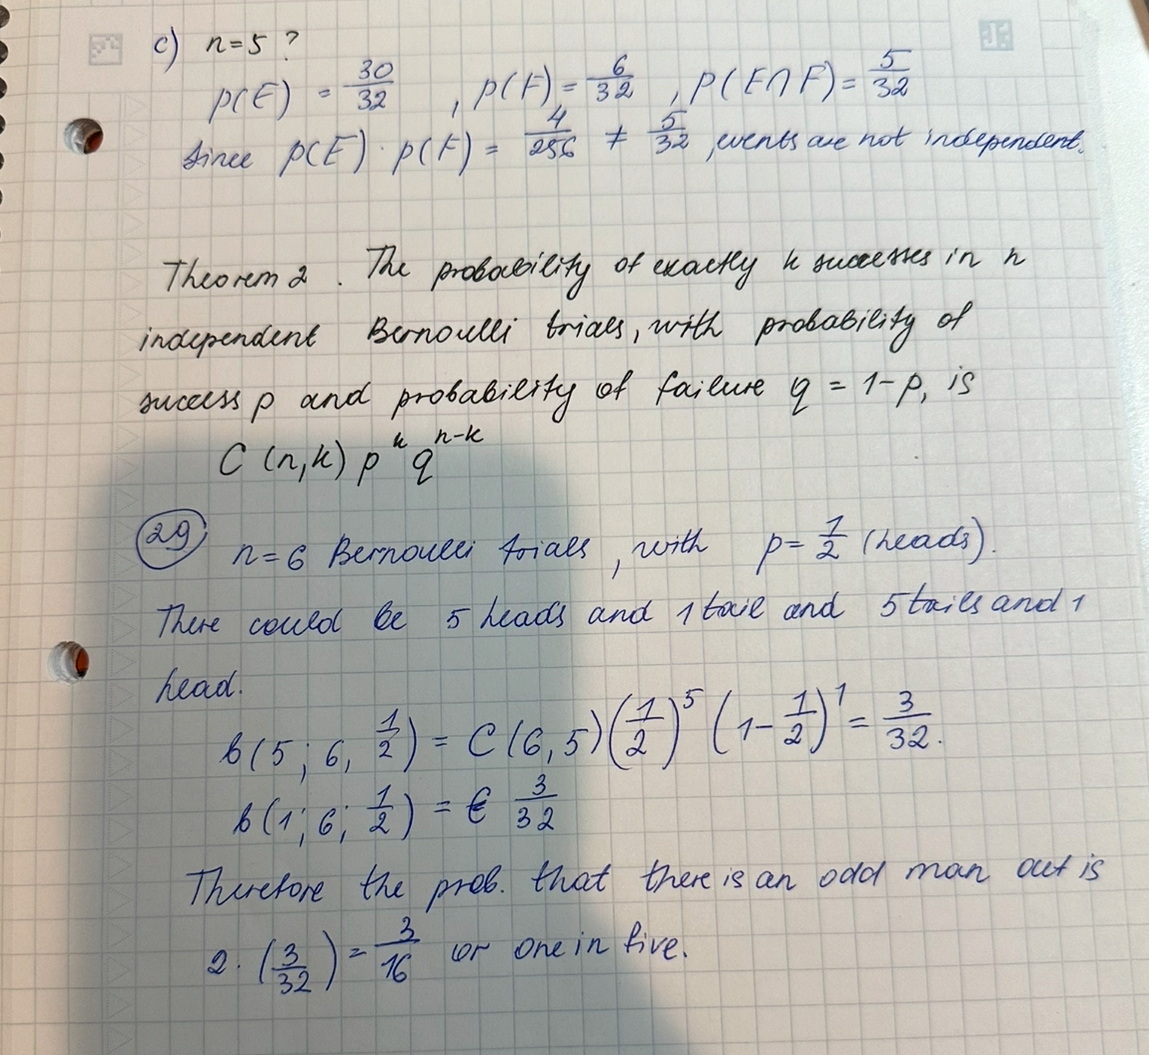 c) n=5 ?
p(E) = 30/32 , p(F) = 6/32 , p(E∩F) = 5/32
Since p(E) · p(F) = 4/256 ≠ 5/32 , events are not independent.
Theorem 2 . The probability of exactly k successes in n
independent Bernoulli trials, with probability of
success p and probability of failure q = 1-p, is
C (n,k) p^k q^(n-k)
29 n=6 Bernoulli trials , with p= 1/2 (heads).
There could be 5 heads and 1 tail and 5 tails and 1
head.
b(5 ; 6, 1/2) = C(6,5)(1/2)^5 (1- 1/2)^1 = 3/32.
b(1; 6; 1/2) = 3/32
Therefore the prob. that there is an odd man out is
2. (3/32) = 3/16 or one in five.